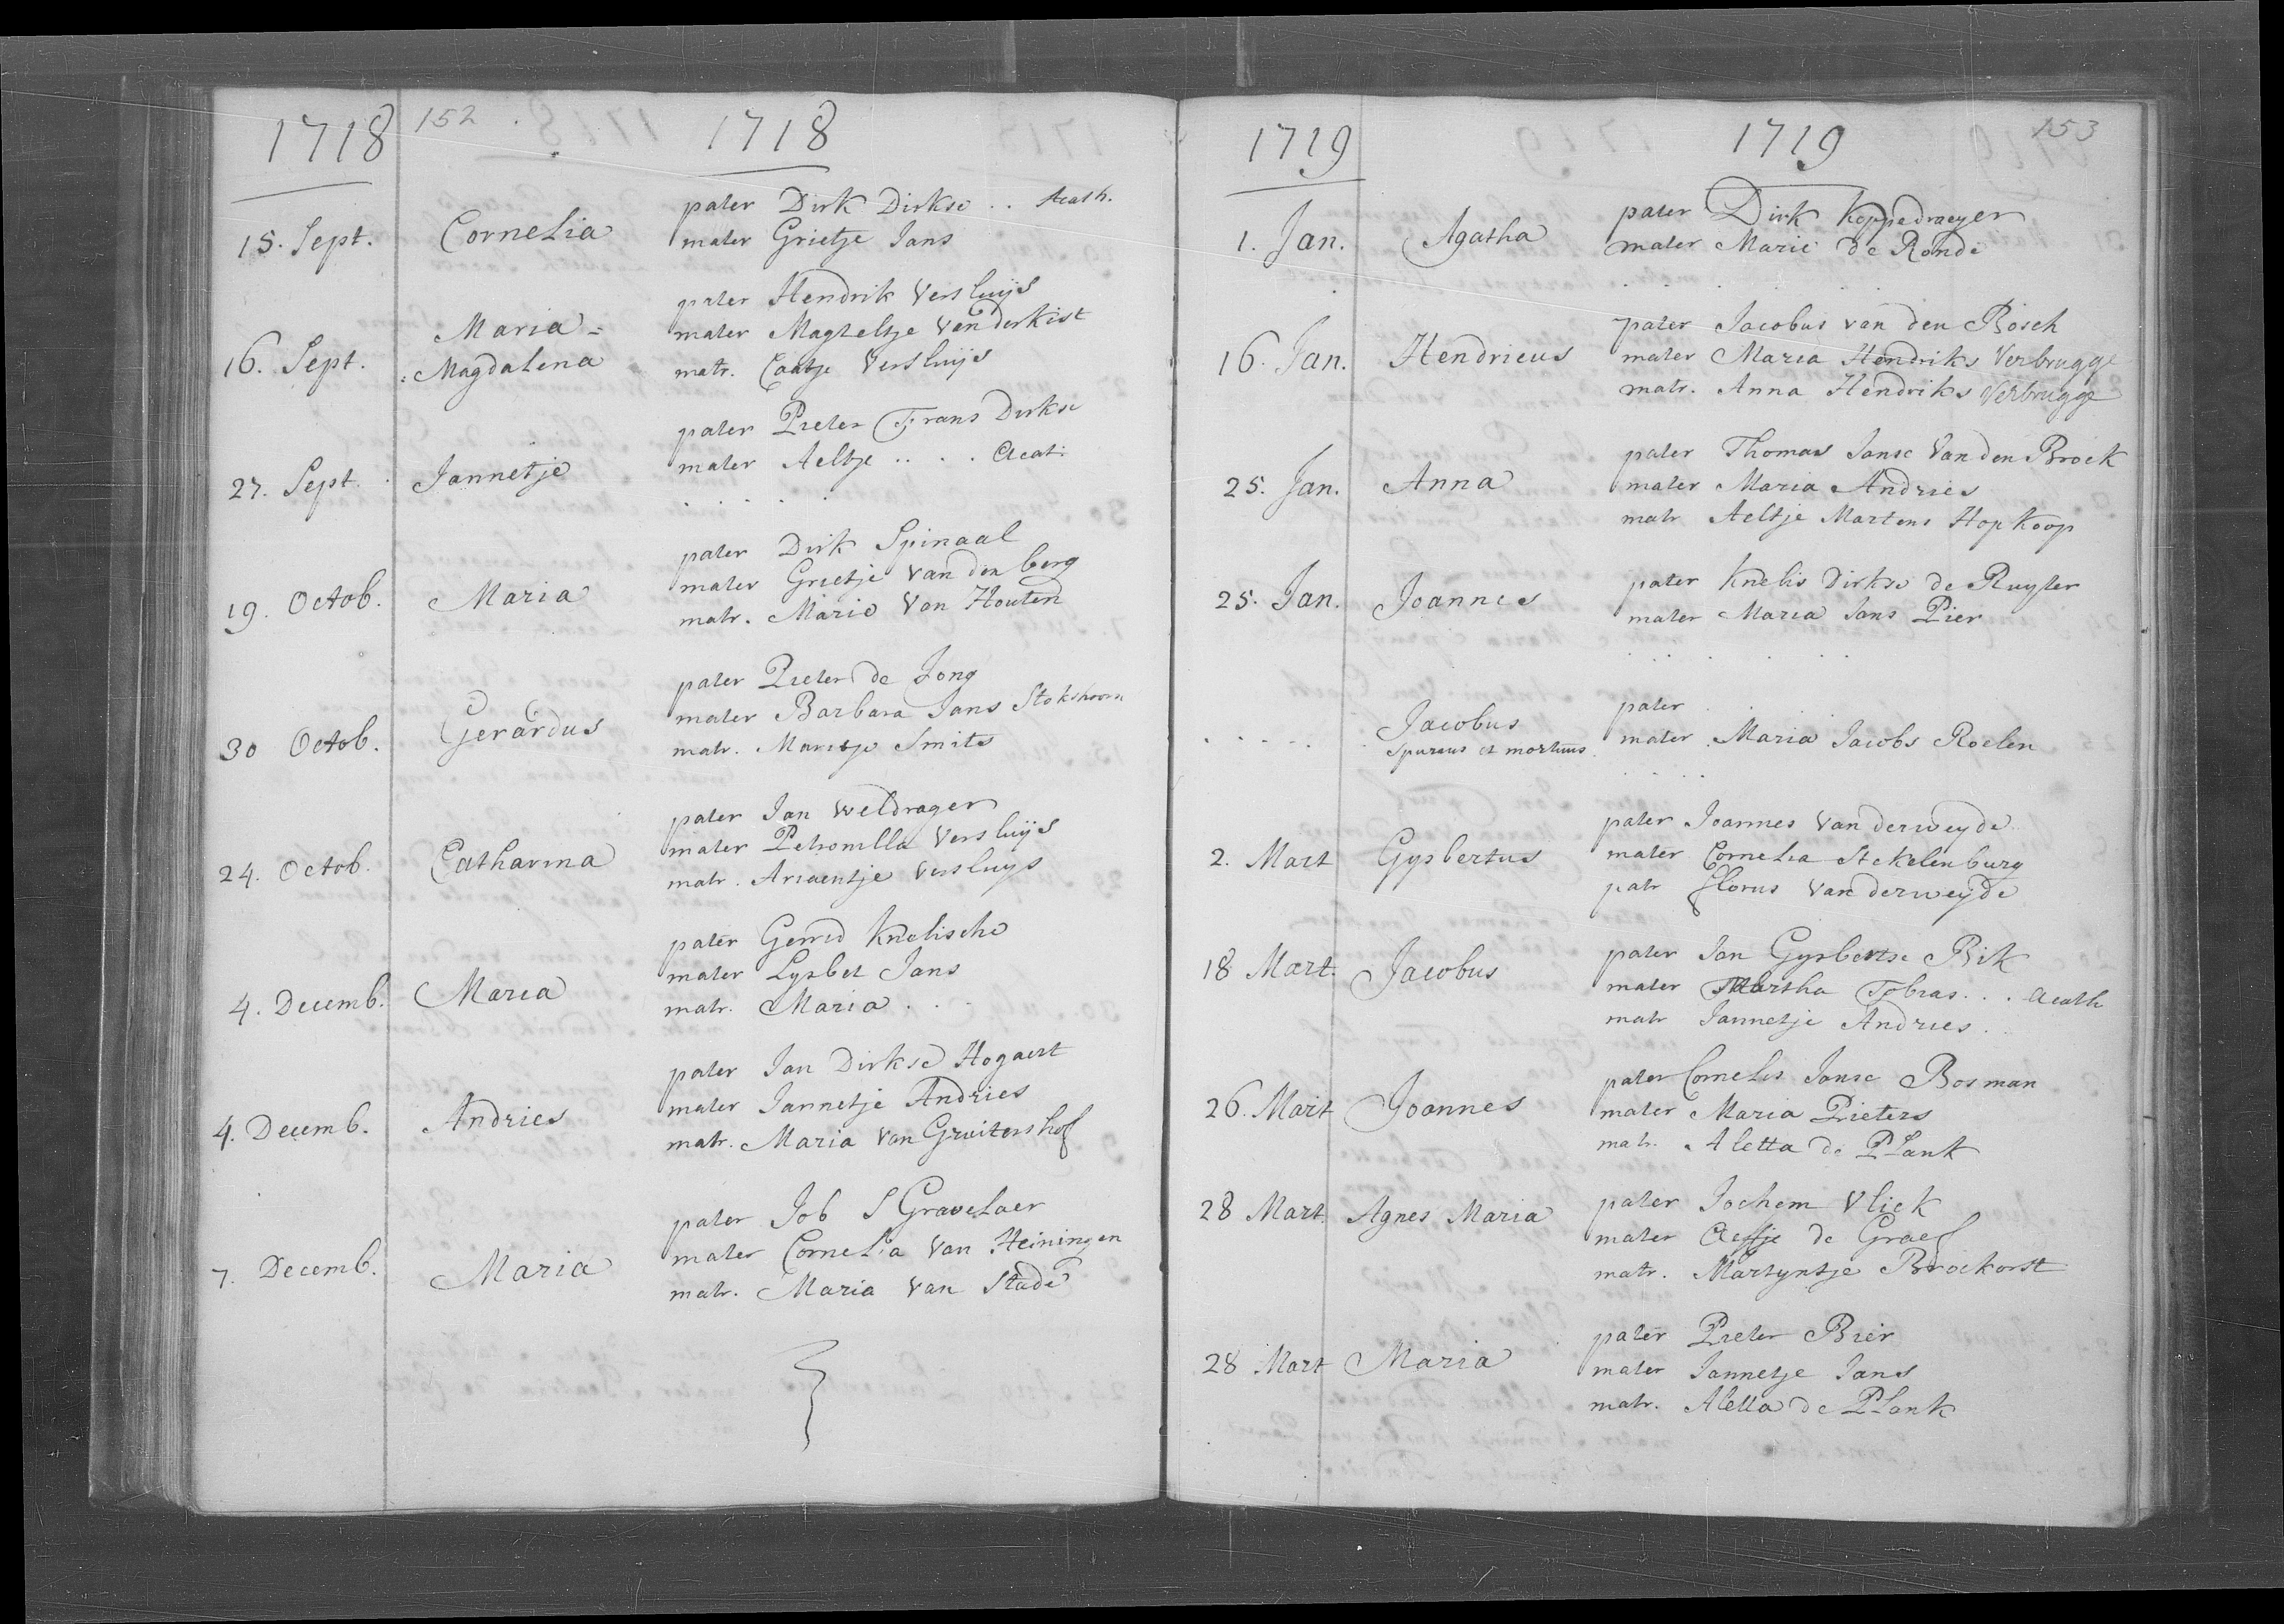 1718 152 1718
pater Dirk Dirkse .. Acath.
15. Sept. Cornelia mater Grietje Jans
pater Hendrik Versluijs
Maria = mater Magteltje Van der kist
16. Sept. = Magdalena matr. Caatje Versluijs
pater Pieter Frans Dirkse
27. Sept. Jannetje mater Aeltje .. . . Acat:
. . . . .
pater Dirk Spinaal
19. Octob. Maria mater Grietje van den berg
matr. Marie Van Houten
pater Pieter de Jong
30 Octob. Gerardus mater Barbara Jans Stokshoorn
matr. Maritje Smits
pater Jan Weldrager
24. Octob. Catharina mater Petronilla Versluijs
matr. Ariaentje Versluys
pater Gerrid Knelische
4. Decemb. Maria mater Lysbet Jans
matr. Maria . . -
pater Jan Dirkse Hogaert
4. Decemb. Andries mater Jannetje Andries
matr. Maria Van Gruitershof
pater Job S Gravelaer
7. Decemb. Maria mater Cornelia Van Heiningen
matr. Maria Van Stade
1719 1719 153
pater Dirk Koppedraeyer
1. Jan. Agatha mater Marie de Ronde
. . . . . .
pater Jacobus van den Bosch
16. Jan. Hendricus mater Maria Hendriks Verbrugge
matr. Anna Hendriks Verbrugge
pater Thomas Janse Van den Broek
25. Jan. Anna mater Maria Andries
matr Aeltje Martens Hopkoop
pater Knelis Dirkse de Ruyter
25. Jan. Joannes mater Maria Jans Pier
. . . . . .
pater . .
. - - - - . Jacobus mater Maria Jacobs Roelen
Spurius et mortuus.
. . . .
pater Joannes Van derweyde
2. Mart Gysbertus mater Cornelia Stekelenburg
patr florus Van derweyde
pater Jan Gysbertse Bik
18 Mart. Jacobus mater Martha Tobias . . . Acath
matr Jannetje Andries .
pater Cornelis Janse Bosman
26. Mart Joannes mater Maria Pieters
matr. Aletta de Plank
28 Mart. Agnes Maria pater Jochem Vliek
mater Aefje de Graef
matr. Martyntje Broekorst
pater Pieter Bier
28 Mart Maria mater Jannetje Jans
matr. Aletta de Plank